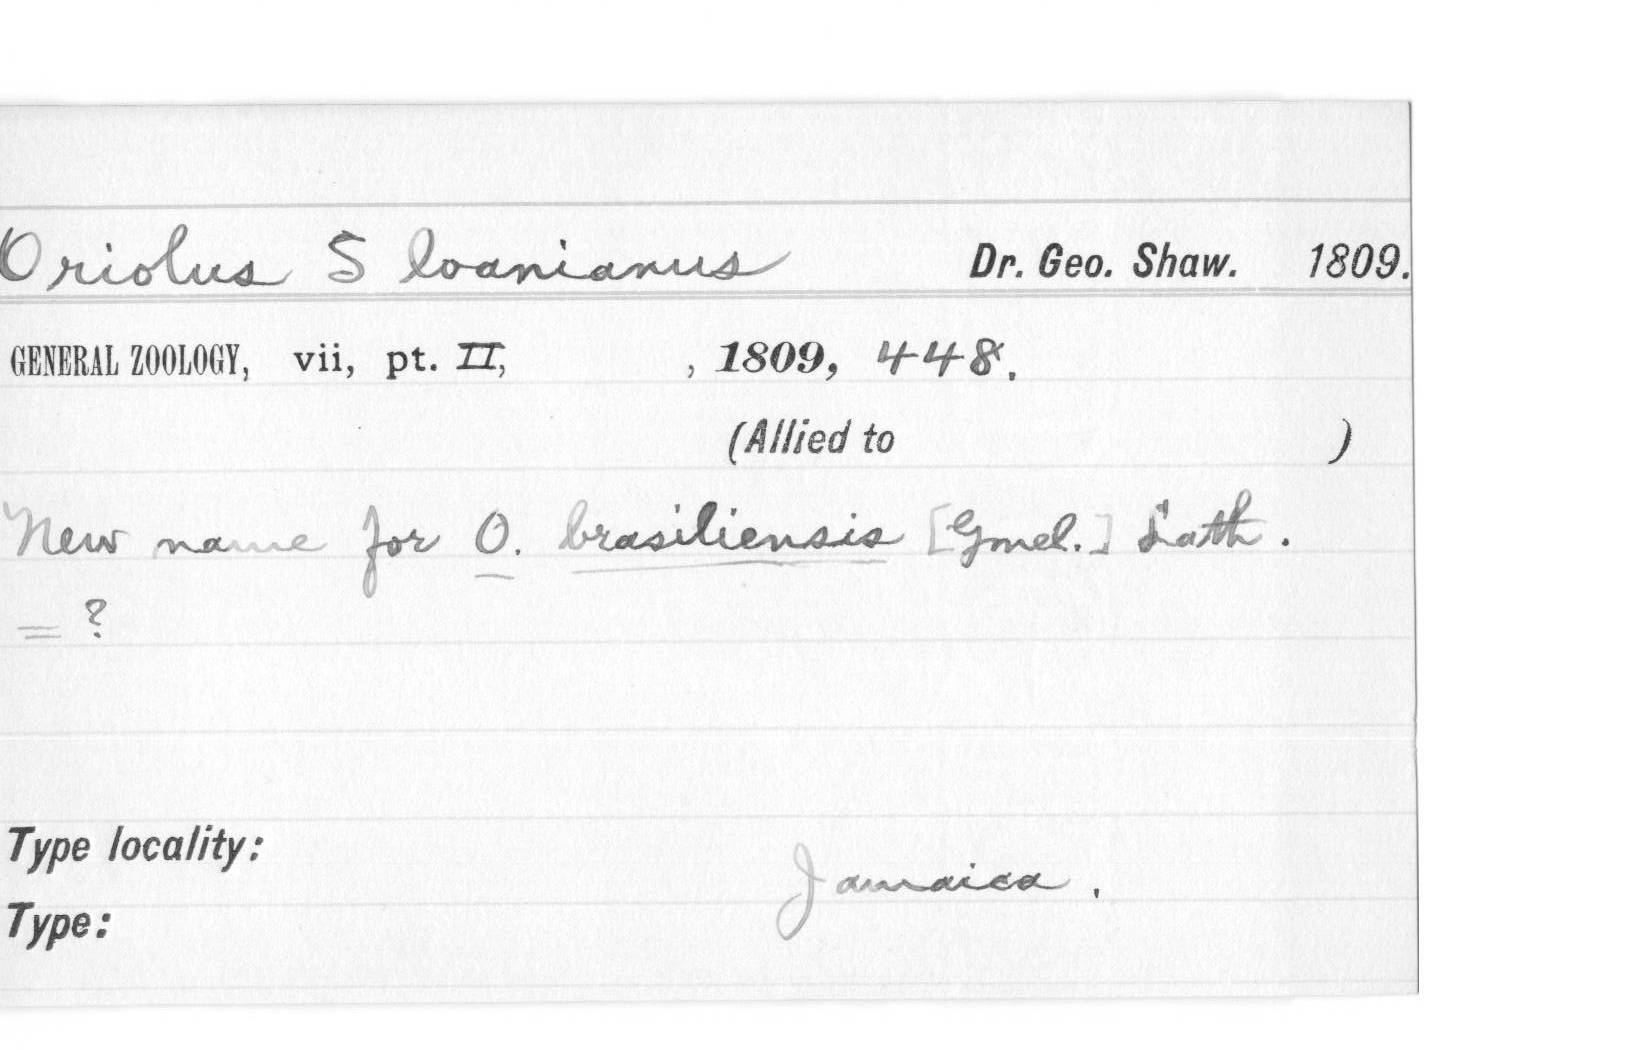 Oriolus Sloanianus Dr. Geo. Shaw. 1809.
GENERAL ZOOLOGY, vii, pt. II, , 1809, 448.
(Allied to )
New name for O. brasiliensis [Gmel.] Lath.
= ?
Type locality:
Jamaica.
Type: